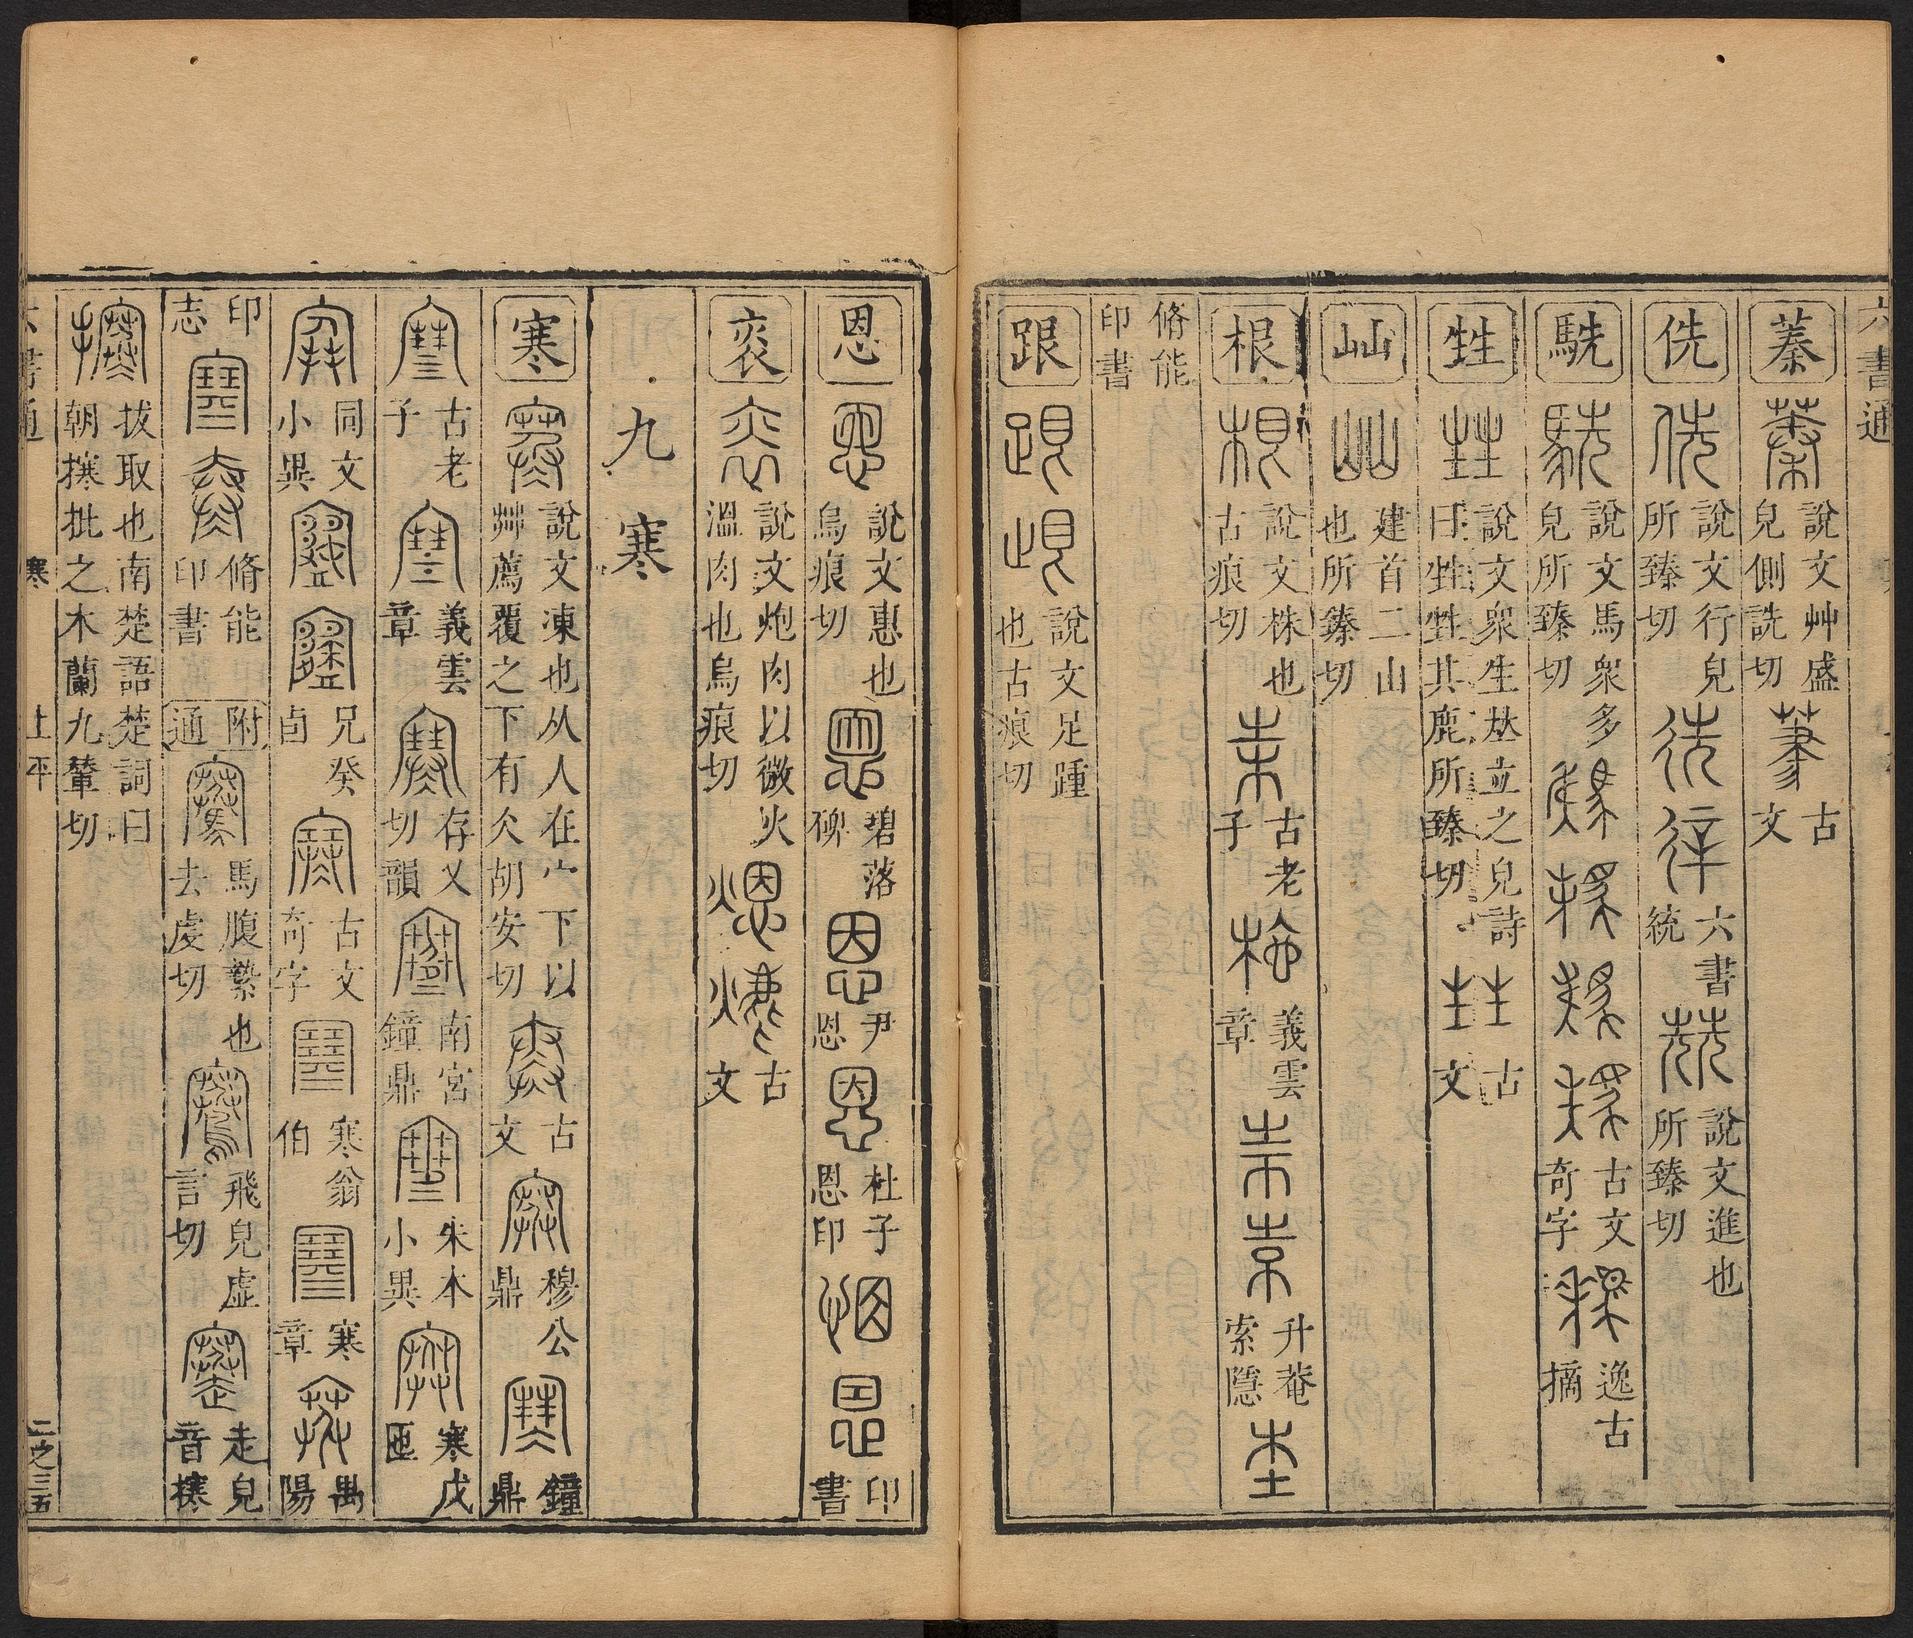 六書通
蓁 說文艸盛皃側詵切 古文
侁 說文行皃所臻切 六書統 說文進也所臻切
駪 說文馬衆多皃所臻切 古文奇字 逸古摘
甡 說文衆生並立之皃詩曰甡甡其鹿所臻切 古文
屾 建首二山也所臻切
根 說文株也古痕切 古老子 義雲章 升菴索隱
脩能印書
跟 說文足踵也古痕切
恩 說文惠也烏痕切 碧落碑 尹恩 杜子恩印 印書
衮 說文炮肉以微火溫肉也烏痕切 古文
九寒
寒 說文凍也从人在宀下以茻薦覆之下有仌胡安切 古文 穆公鼎 鐘鼎
古老子 義雲章 存乂切韻 南宮鐘鼎 朱本小異 寒戊匜
同文小異 兄癸卣 古文奇字 寒翁伯 寒章 禺陽
印志 脩能印書 附通 馬腹縶也去虔切 飛皃虛言切 走皃音攐
拔取也南楚語楚詞曰朝攓批之木蘭九輦切
六書通 寒 上平 二之三五